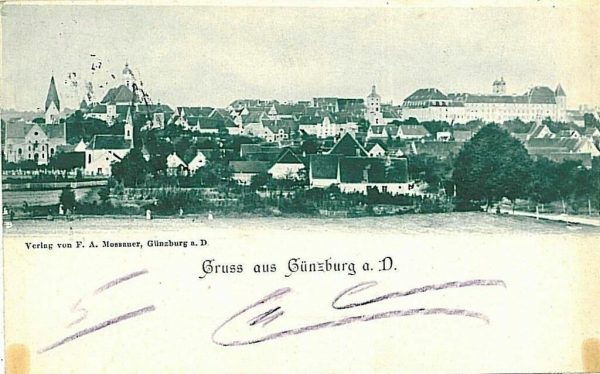 Verlag von F. A. Mossauer, Günzburg a. D.
Gruss aus Günzburg a. D.